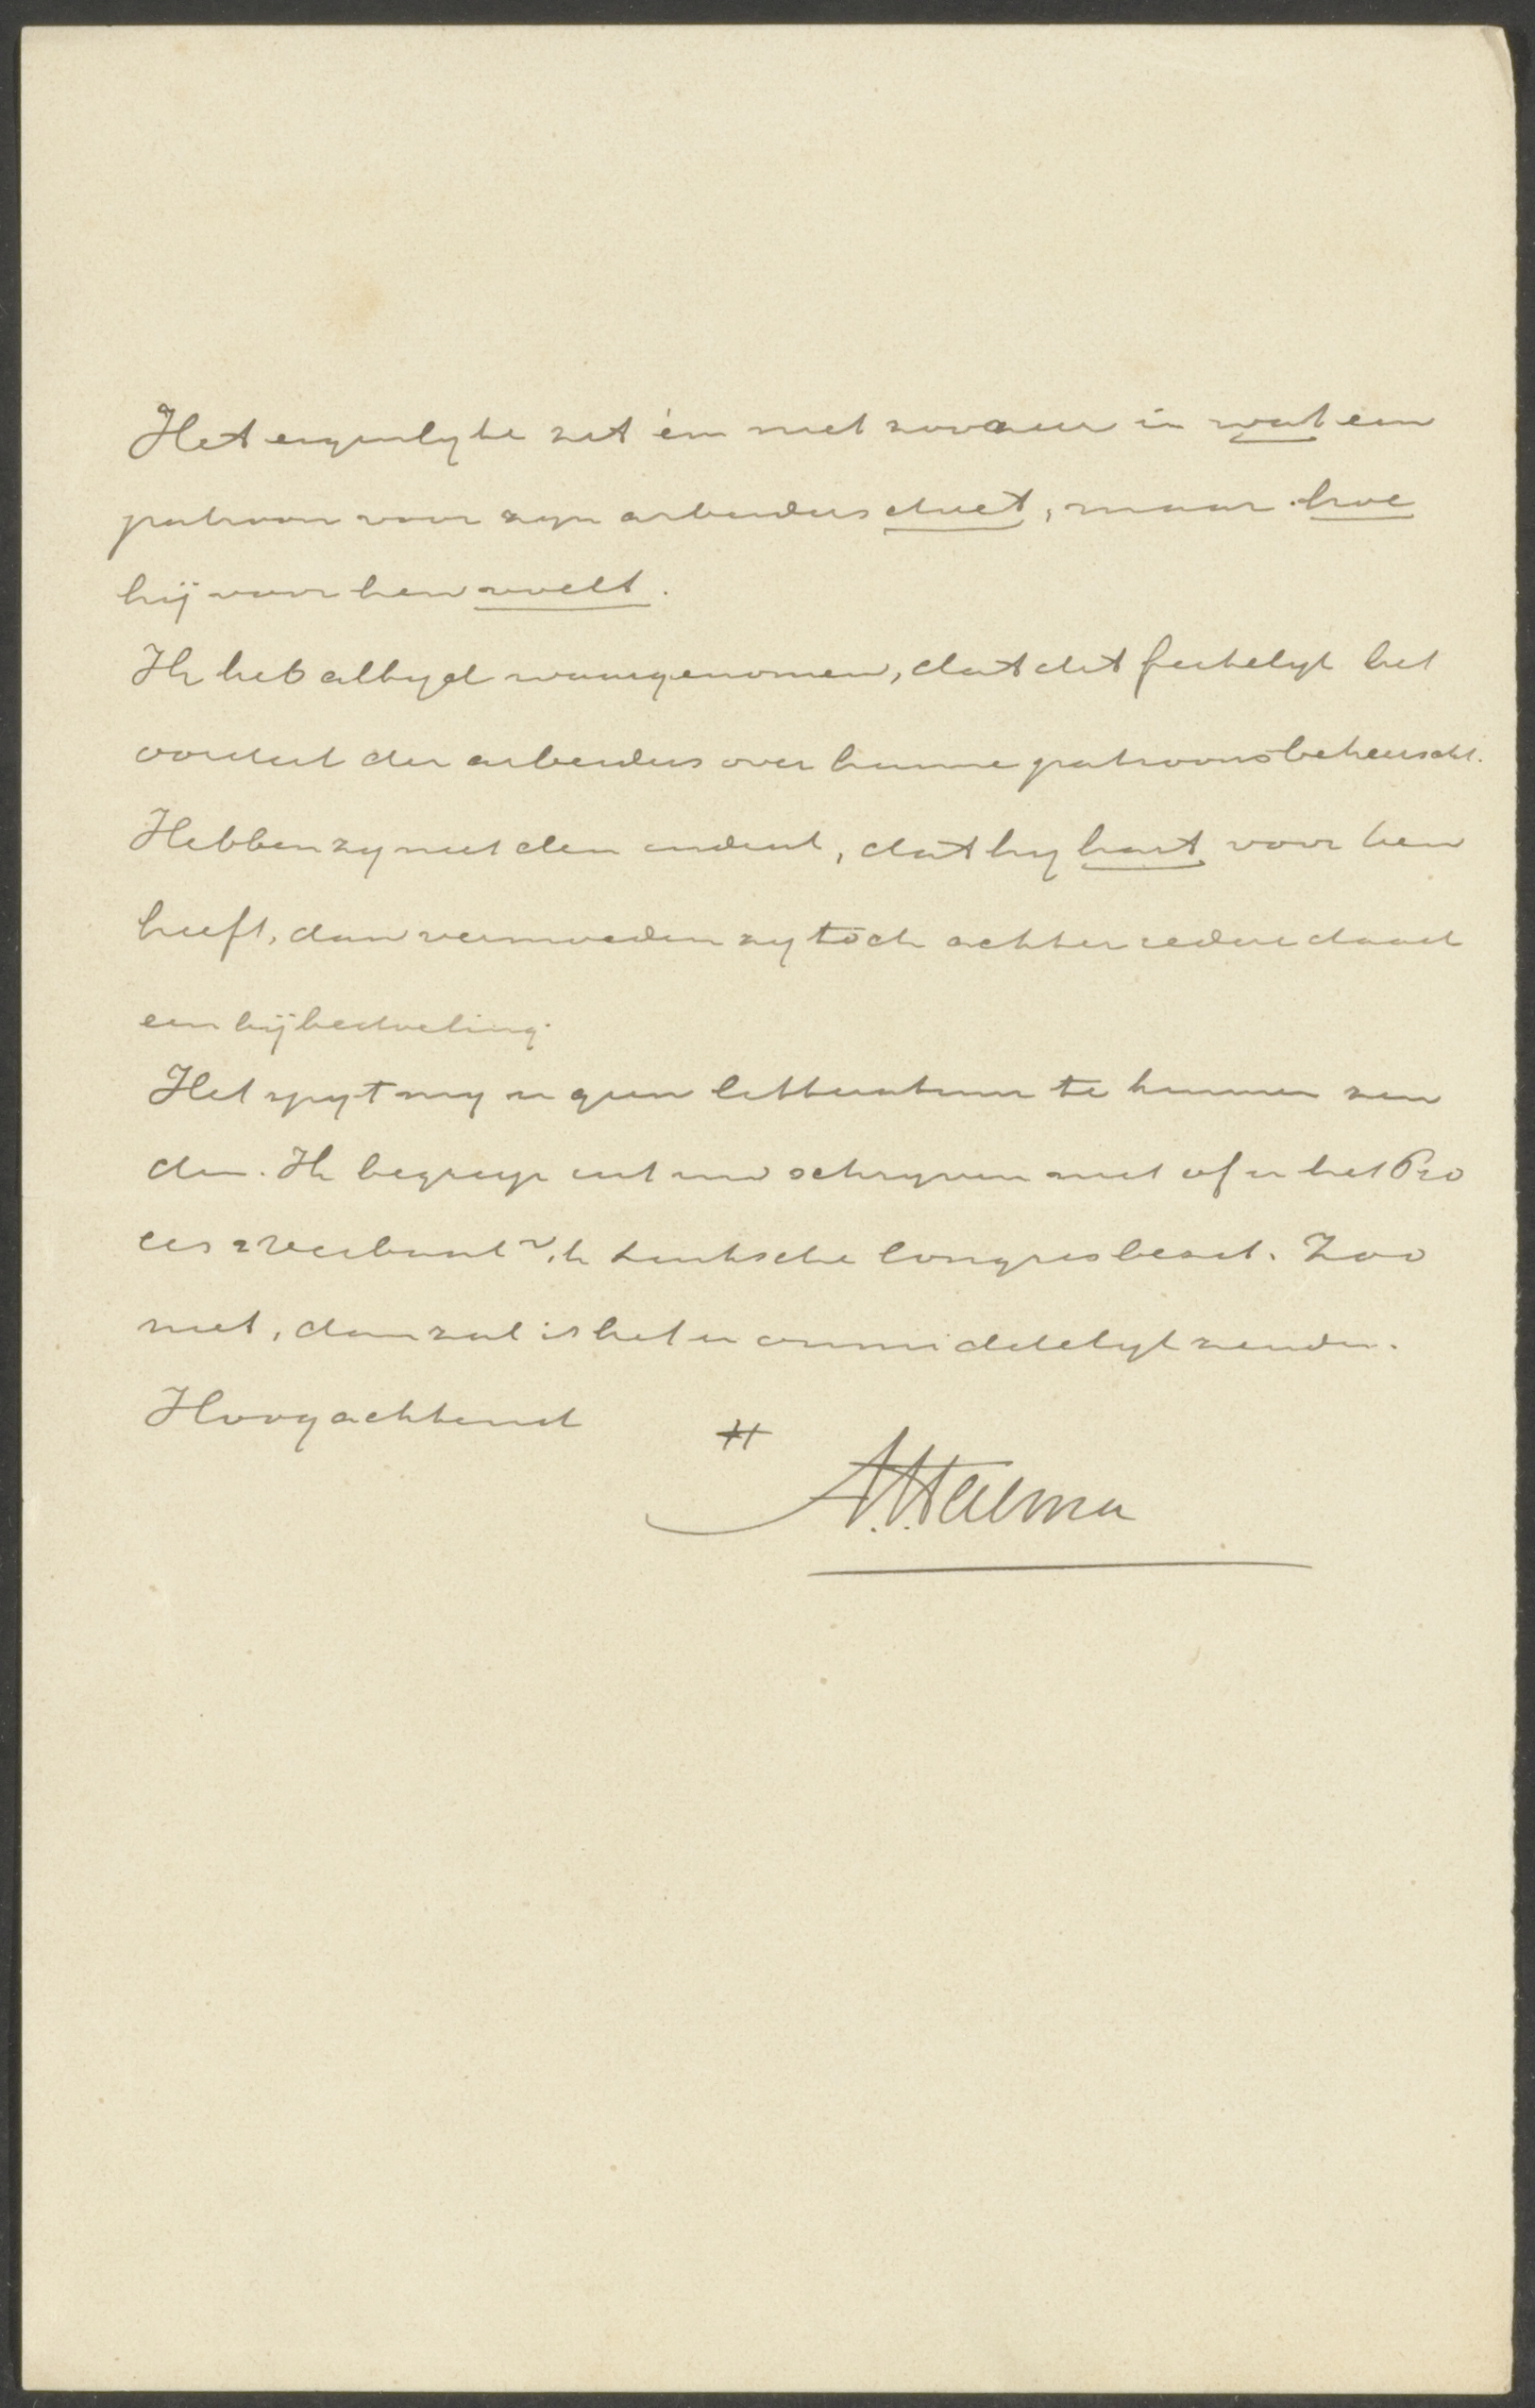 Het eigenlyke zit 'em niet zoozeer in wat een
patroon voor zyn arbeiders doet, maar hoe
hij voor hen voelt.
Ik heb altyd waargenomen, dat dit feitelyk het
oordeel der arbeiders over hunne patroons beheerscht.
Hebben zy niet den indruk, dat hy hart voor hen
heeft, dan vermoeden zy toch achter iedere daad
een bijbedoeling.
Het spyt my u geen litteratuur te kunnen zen
den. Ik begryp uit uw schryven niet of u het Pro
ces Verbaal v. h. Duitsche Congres bezit. Zoo
niet, dan zal ik het u onmiddellyk zenden.
Hoogachtend
A.S. Talma